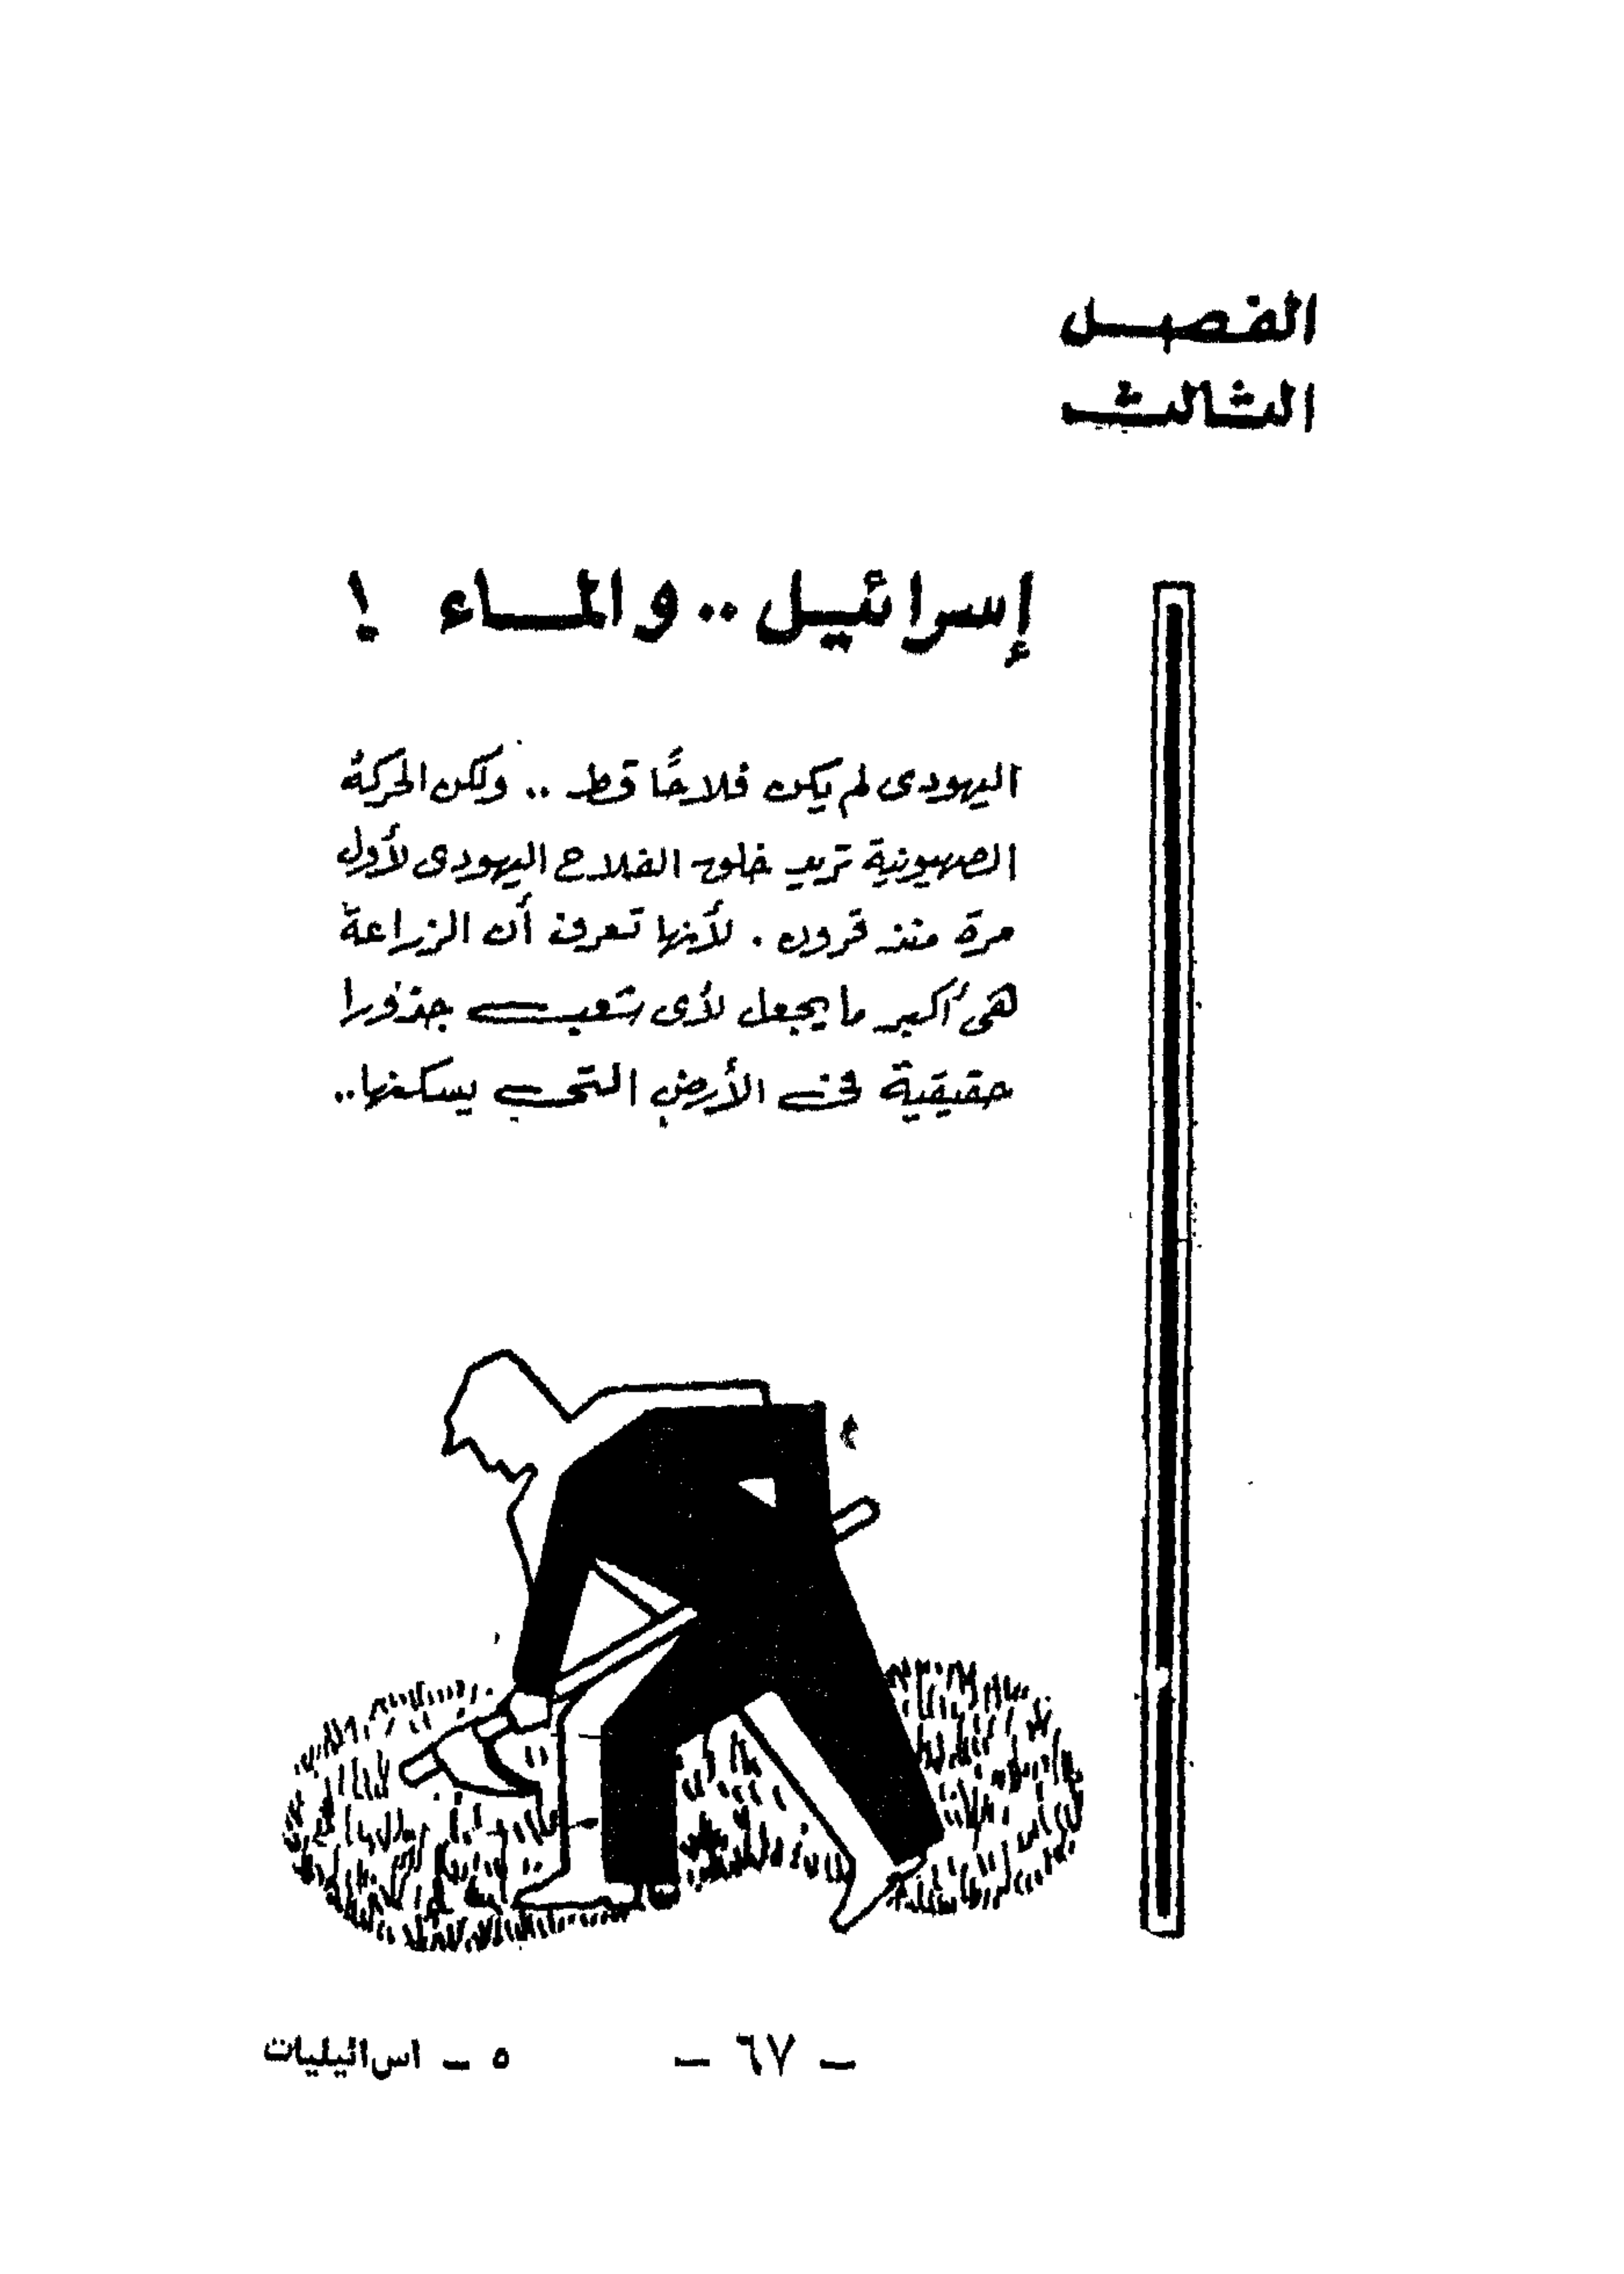 الفصل
الثالث
إسرائيل .. والماء !
اليهودى لم يكن فلاحًا قط .. ولكن الحركة
الصهيونية تريد خلق الفلاح اليهودى لأول
مرة منذ قرون . لأنها تعرف أن الزراعة
هى أكبر ما يجعل لأى شعب جذورا
حقيقية فى الأرض التى يسكنها ..
- ٦٧ -
٥ - اسرائيليات